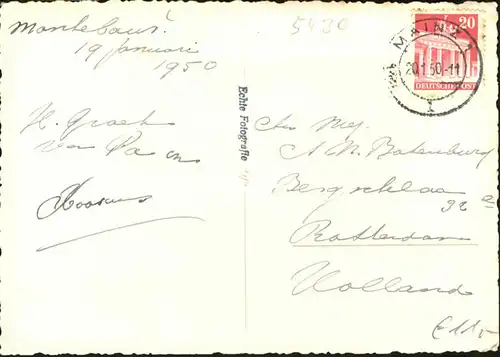 Montebaur
19 januari
1950
5430
20
MAINZ 1
20.1.50.-11
DEUTSCHE POST
H. Groet
van Pa en
Echte Fotografie
Mej.
A M. Batenburg
Berg
32 a
Rotterdam
Holland